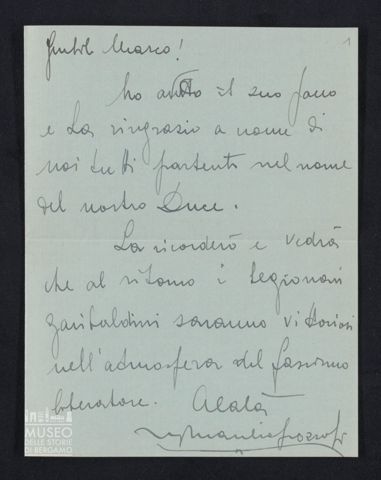 Gentile Marco!
1
ho avuto il suo
e La ringrazio a nome di
noi tutti partenti nel nome
del nostro Duce.
La ricorderò e vedrà
che al ritorno i legionari
garibaldini saranno vittoriosi
nell'atmosfera del fascismo
liberatore. Alalà
MUSEO
DELLE STORIE
DI BERGAMO